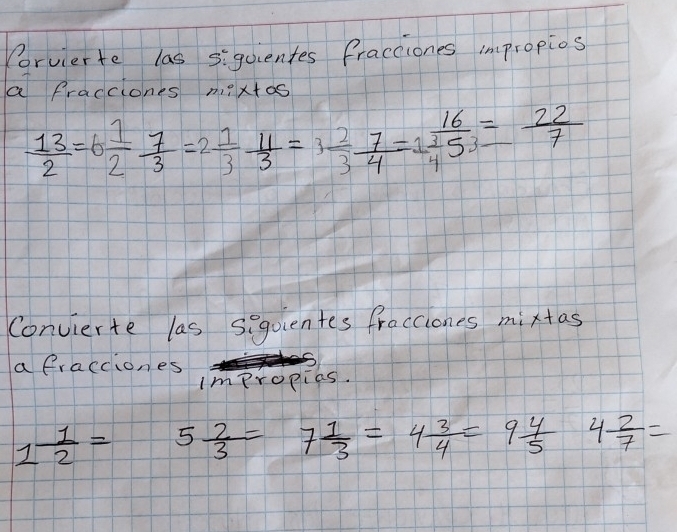 Corvierte las siguientes fracciones impropios
a fracciones mixtos
13/2 = 6 1/2 7/3 = 2 1/3 11/3 = 3 2/3 7/4 = 1 3/4 16/5 = 3 22/7
Convierte las siguientes fracciones mixtas
a fracciones
impropias.
1 1/2 = 5 2/3 = 7 1/3 = 4 3/4 = 9 4/5 4 2/7 =